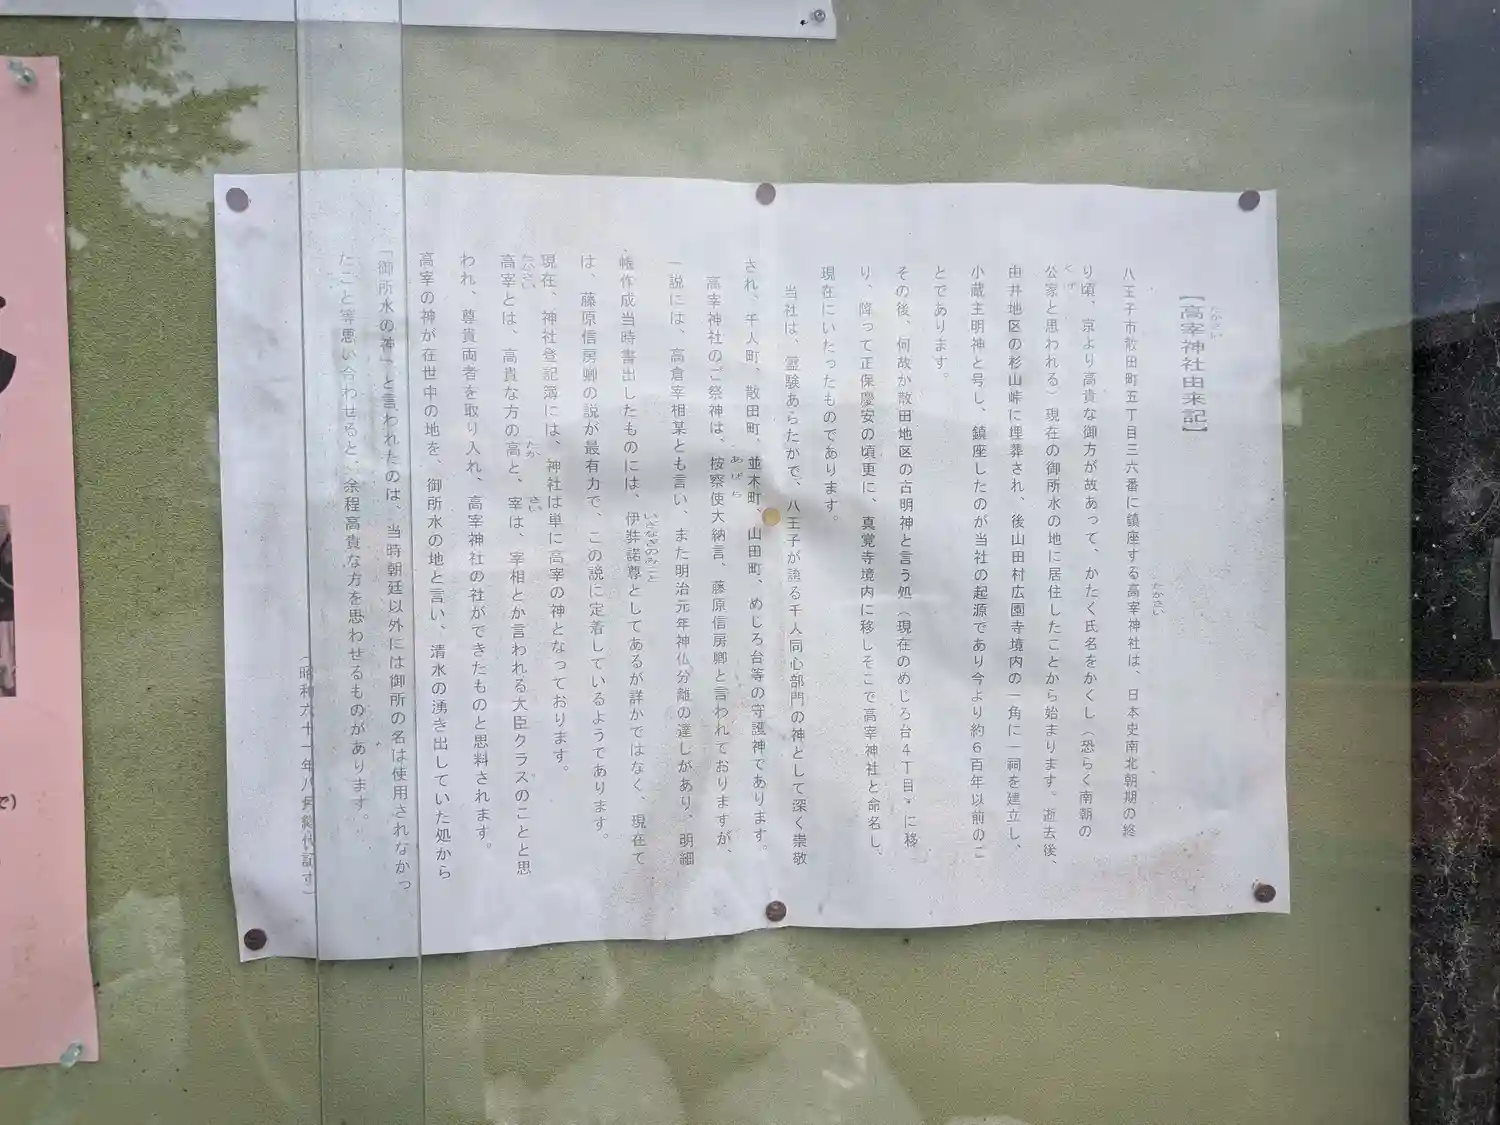 【高宰神社由来記】
たかさい
八王子市散田町五丁目三六番に鎮座する高宰神社は、日本史南北朝期の終
たかさい
り頃、京より高貴な御方が故あって、かたく氏名をかくし（恐らく南朝の
公家と思われる）現在の御所水の地に居住したことから始まります。逝去後、
くげ
由井地区の杉山峠に埋葬され、後山田村広園寺境内の一角に一祠を建立し、
小蔵主明神と号し、鎮座したのが当社の起源であり今より約６百年以前のこ
とであります。
その後、何故か散田地区の古明神と言う処（現在のめじろ台４丁目・に移
り、降って正保慶安の頃更に、真覚寺境内に移しそこで高宰神社と命名し、
現在にいたったものであります。
当社は、霊験あらたかで、八王子が誇る千人同心部門の神として深く崇敬
され、千人町、散田町、並木町、山田町、めじろ台等の守護神であります。
高宰神社のご祭神は、按察使大納言、藤原信房卿と言われておりますが、
あぜち
一説には、高倉宰相某とも言い、また明治元年神仏分離の達しがあり、明細
帳作成当時書出したものには、伊弉諾尊としてあるが詳かではなく、現在で
いざなぎのみこと
は、藤原信房卿の説が最有力で、この説に定着しているようであります。
現在、神社登記簿には、神社は単に高宰の神となっております。
高宰とは、高貴な方の高と、宰は、宰相とか言われる大臣クラスのことと思
たかさい たか さい
われ、尊貴両者を取り入れ、高宰神社の社ができたものと思料されます。
高宰の神が在世中の地を、御所水の地と言い、清水の湧き出していた処から
「御所水の神」と言われたのは、当時朝廷以外には御所の名は使用されなかっ
たこと等思い合わせると、余程高貴な方を思わせるものがあります。
（昭和六十一年八月総代記す）
で）